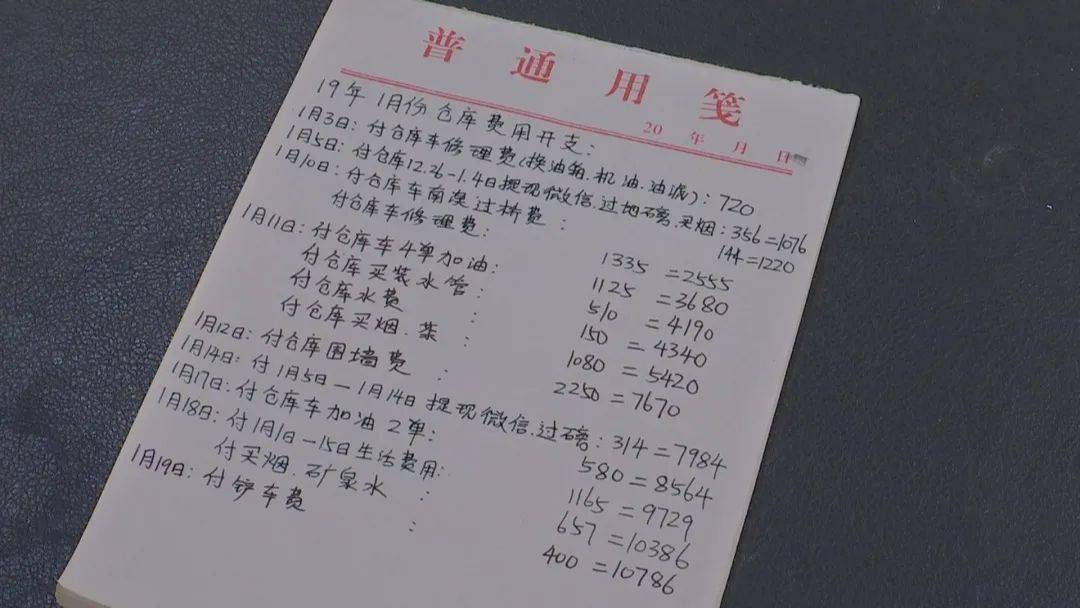 普通用笺
20 年 月 日
19年1月份仓库费用开支:
1月3日: 付仓库车修理费(换油箱.机油.油泥): 720
1月5日: 付仓库12.26-1.4日提现微信.过地磅.买烟: 356=1076
1月10日: 付仓库车南澳过桥费: 144=1220
付仓库车修理费: 1335=2555
1月11日: 付仓库车4单加油: 1125=3680
付仓库买装水管: 510=4190
付仓库水费: 150=4340
付仓库买烟.茶: 1080=5420
1月12日: 付仓库围墙费: 2250=7670
1月14日: 付1月5日-1月14日提现微信.过磅: 314=7984
1月17日: 付仓库车加油2单: 580=8564
1月18日: 付1月1日-15日生活费用: 1165=9729
付买烟.矿泉水: 657=10386
1月19日: 付铲车费: 400=10786